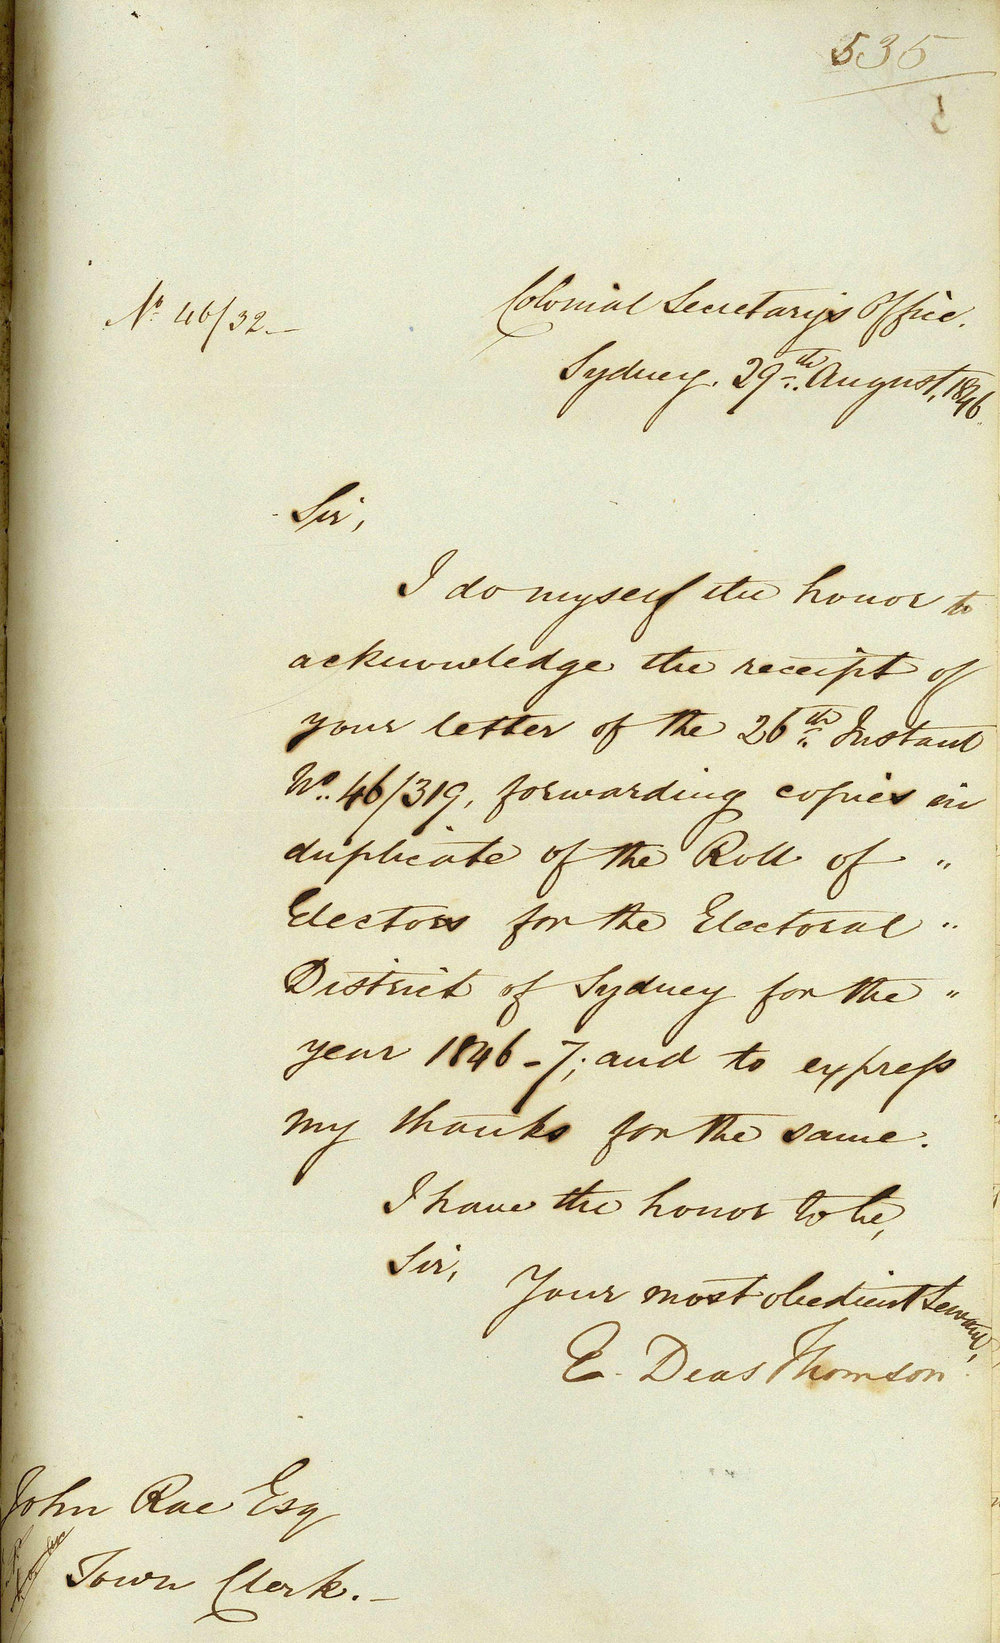 535
Nº 46/32.—
Colonial Secretary's Office.
Sydney. 29th August, 1846.
Sir,
I do myself the honor to
acknowledge the receipt of
your letter of the 26th Instant
Nº. 46/319, forwarding copies in
duplicate of the Roll of "
Electors for the Electoral "
District of Sydney for the "
year 1846-7; and to express
my thanks for the same.
I have the honor to be,
Sir,
Your most obedient Servant,
E. Deas Thomson
John Rae Esq
Town Clerk.—